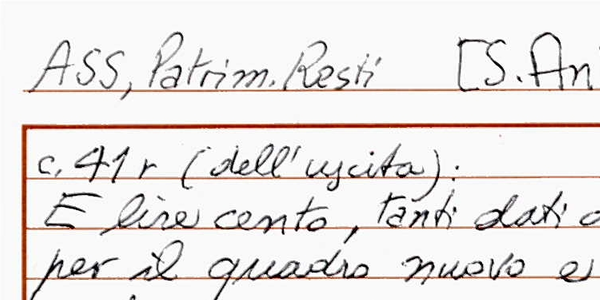 ASS, Patrim. Resti [S. An
c. 41 r (dell'uscita):
E lire cento, tanti dati
per il quadro nuovo e